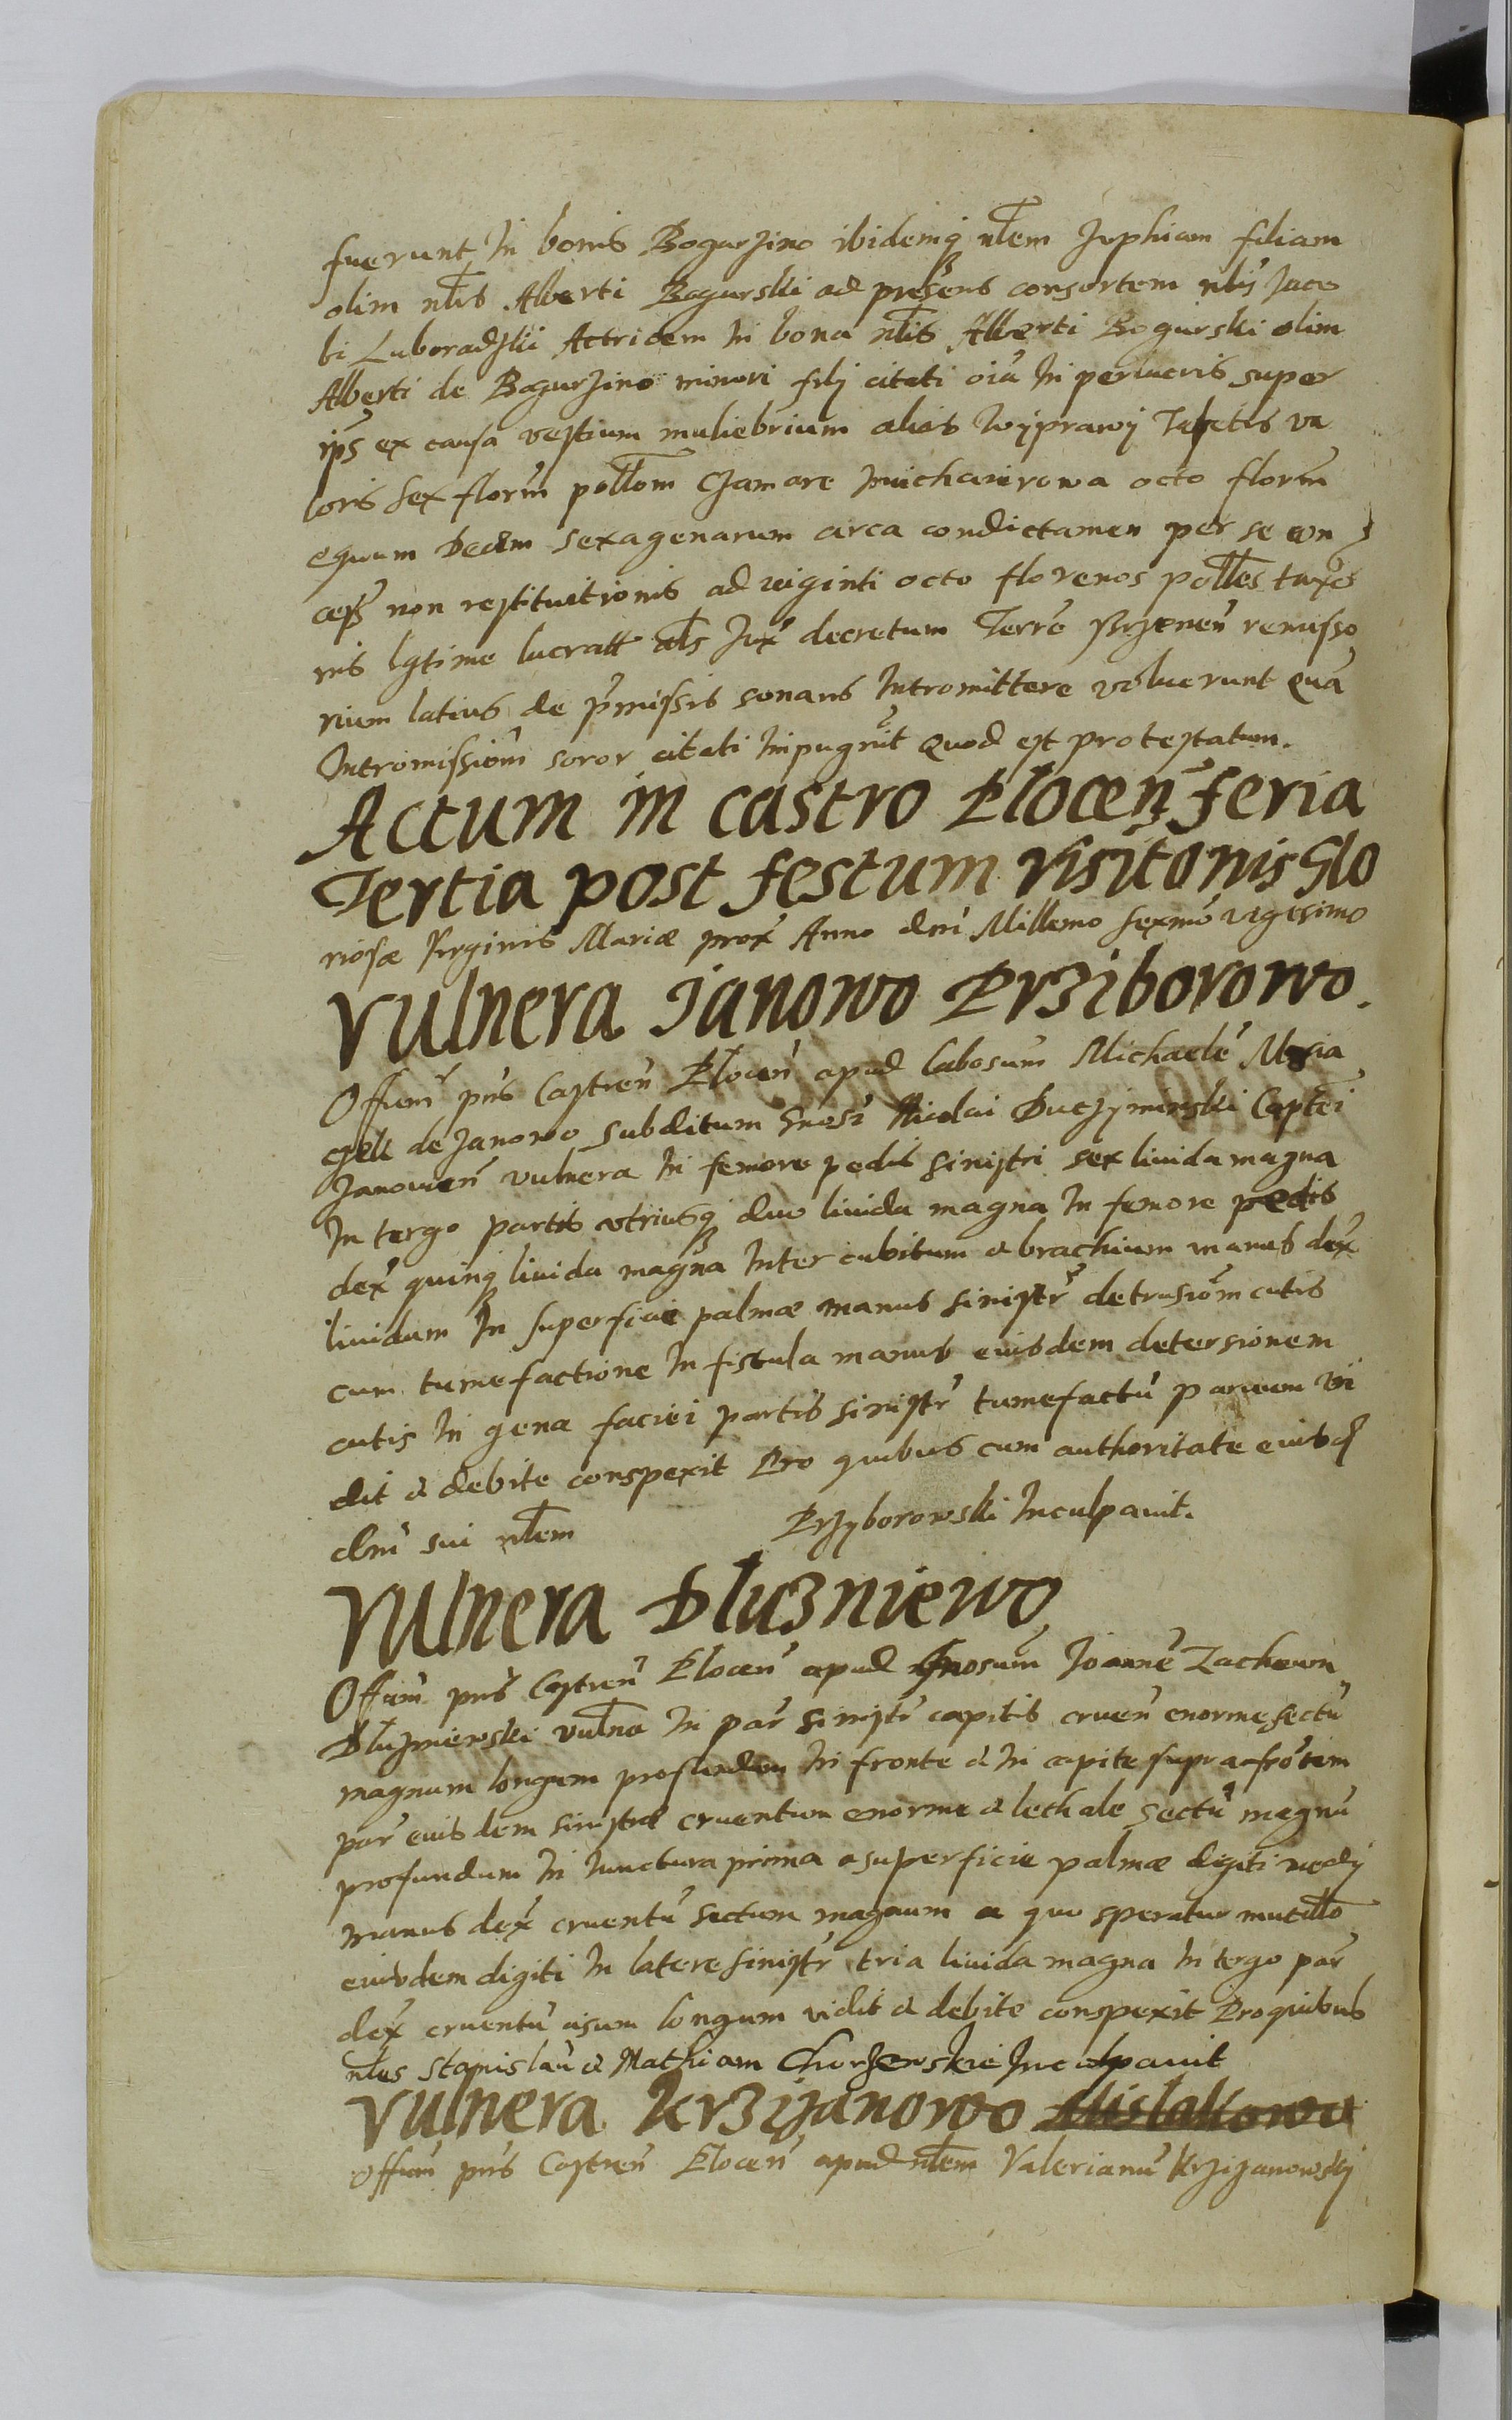 fuerunt In bonis Bogurzino ibidemq nłem Zophiam filiam
olim nłis Alberti Bogurski ad presens consortem nlis Jaco
bi Luboradzkii Actricem In bona nłis Alberti Bogurski olim
Alberti de Bogurzino minori filij citati oia In perlucris super
ips ex causa vestium muliebrium alias wyprawy Tapetis va
loris sex florm pollom Czamare octo florm
equum Decem sexagenarum arca condictamen per se con
cess non restituitionis ad viginti octo florenos polles taxo
nis lgtime lucratt als Jux decretum Terre remisso
rium latius de pmissis sonans Intromittere voluerunt Qua
Intromissiom soror citati Impugnit Quod est protestatum.
Actum in castro Plocen feria
Tertia post festum visitonis Glo
riosæ Virginis Mariæ prox Anno dni Millemo sexmo vigesimo
Vulnera Janowo Prziborowo.
Offium pns Castren Plocen apud labosum Michaele
de Janowo subditum Gnosi Nicolai Duczyminski Captei
Janouien vulnera In femore pedis sinistri sex liuida magna
In tergo partis vtriusq duo liuida magna In femore pedis
dex quinq liuida magna Inter cubitum a brachium manus dex
liuidum In superficie palmæ manus sinistr detrusiom cutis
cum tumefactione In fistula manus eiusdem detersionem
cutis In gena faciei partis sinistr tumefactu paruum vi
dit a debite conspexit Pro quibus cum authoritate eiusd
dni sui nłem Przyborowski Inculpauit.
Vulnera Dluzniewo
Offium pns Castren Plocen apud Gnosum Joanne Zacheum
Dłuzniewski vulna In par sinistr capitis cruen enorme sectu
magnum longum profundum In fronte a In capite supra frotem
par eiusdem sinistra cruentum enorme a lethale sectu magnu
profundum In Iunctura prima a superficie palmæ digiti medij
manus dex cruentu sectum magnum a quo speratur mutillo
eiusdem digiti In latere sinistr tria liuida magna In tergo par
dex cruentu cisum longum vidit a debite conspexit Pro quibus
nłes Stanislau a Mathiam Chorzewskie Inculpauit
Vulnera Krzijanowo Mislakowo
Offium pns Castren Plocen apud nłem Valerianu Krzizanowskj